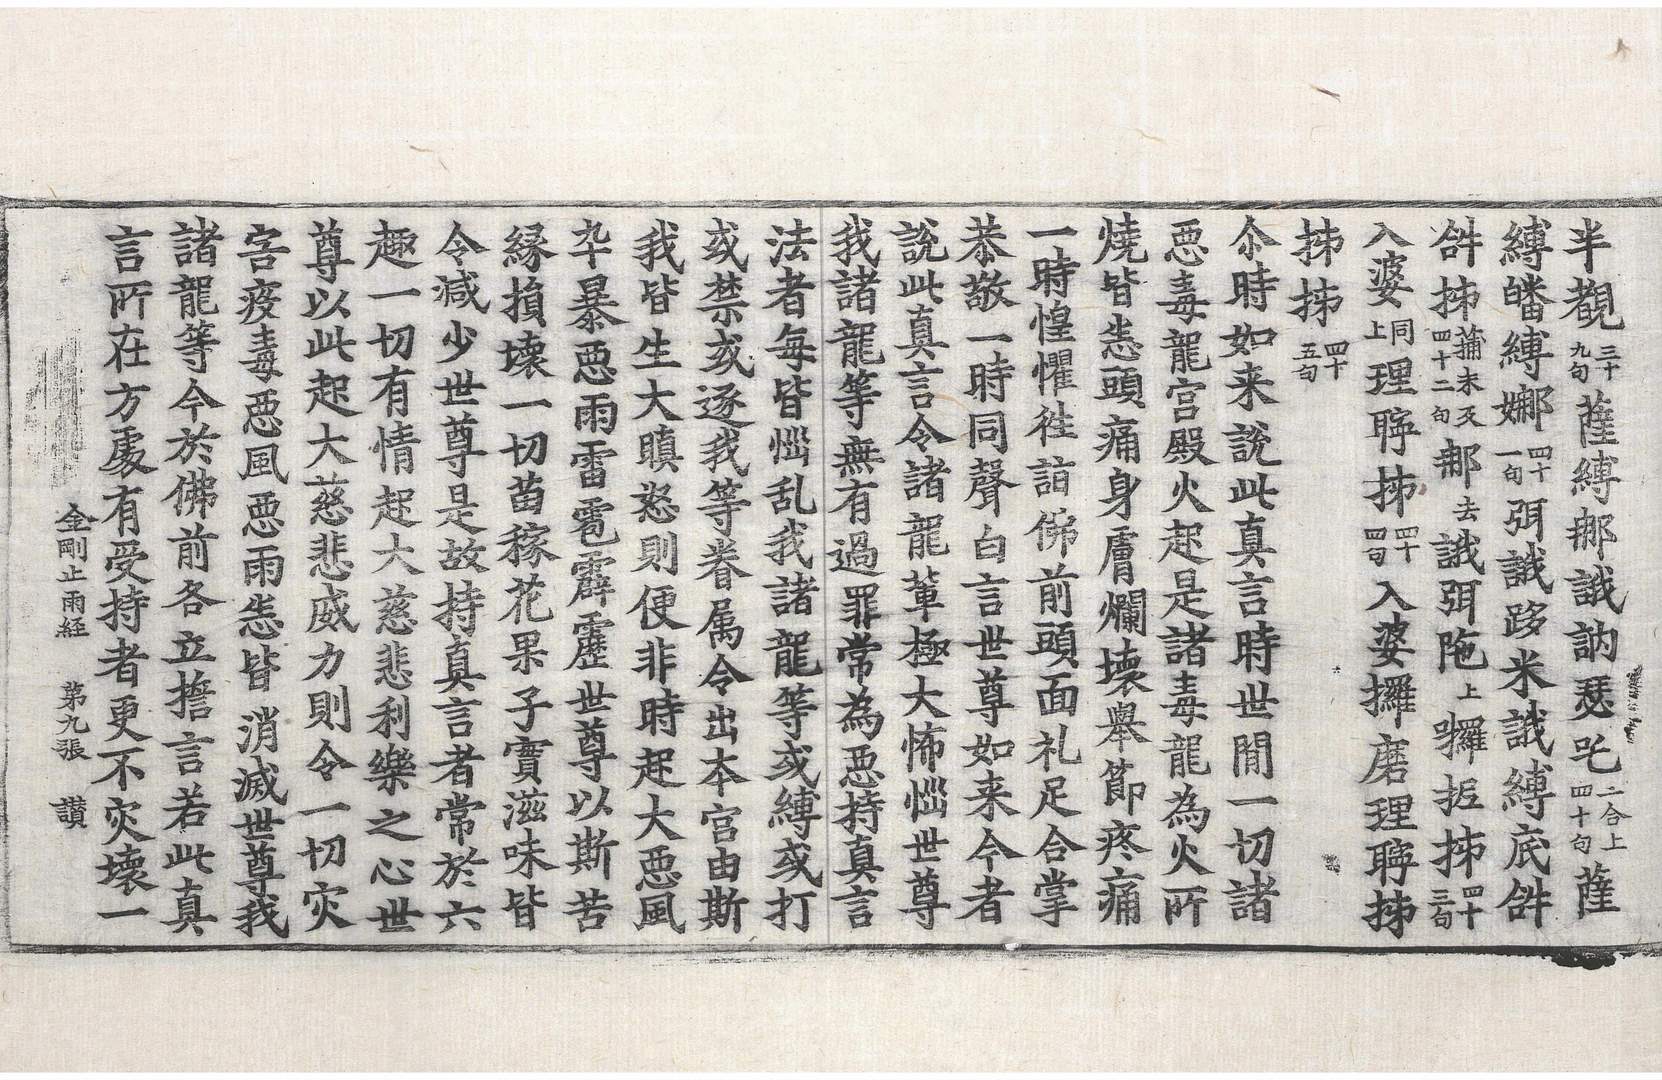 半覩三十九句薩縛𨚗誐訥瑟吒二合上四十句薩
縛皤縛娜四十一句弭誐跢米誐縛底䤈
䤈抪蒲末反四十二句𨚗去誐弭陁上囉抳抪四十三句
入婆同上理聹抪四十四句入婆攞磨理聹抪
抪抪四十五句
尒時如来說此真言時世閒一切諸
惡毒龍宮殿火起是諸毒龍為火所
燒皆悉頭痛身膚爛壞舉節疼痛
一時惶懼徃詣佛前頭面礼足合掌
恭敬一時同聲白言世尊如来今者
說此真言令諸龍軰極大怖惱世尊
我諸龍等無有過罪常為惡持真言
法者每皆惱乱我諸龍等或縛或打
或禁或逐我等眷属令出本宮由斯
我皆生大瞋怒則便非時起大惡風
卒暴惡雨雷雹霹靂世尊以斯苦
緣損壞一切苗稼花果子實滋味皆
令減少世尊是故持真言者常於六
趣一切有情起大慈悲利樂之心世
尊以此起大慈悲威力則令一切灾
害疫毒惡風惡雨悉皆消滅世尊我
諸龍等今於佛前各立擔言若此真
言所在方處有受持者更不灾壞一
金剛止雨経 第九張 讃